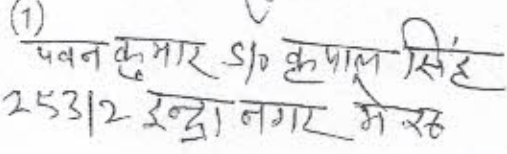 (1)
पवन कुमार S/o कृपाल सिंह
253/2 इन्द्रा नगर मेरठ